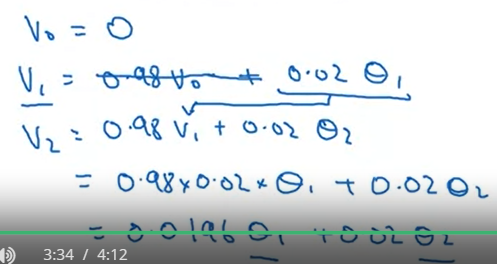 V₀ = 0
V₁ = ~~0.98 V₀ +~~ 0.02 θ₁
V₂ = 0.98 V₁ + 0.02 θ₂
= 0.98 x 0.02 x θ₁ + 0.02 θ₂
= 0.0196 θ₁ + 0.02 θ₂
3:34 / 4:12